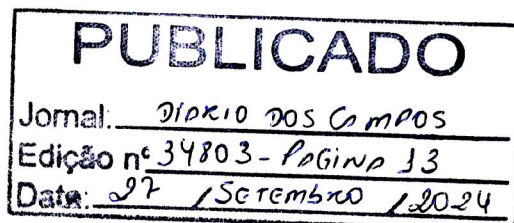 PUBLICADO
Jornal: DIARIO DOS CAMPOS
Edição nº 34803 - PAGINA 13
Data: 27 / SETEMBRO / 2024